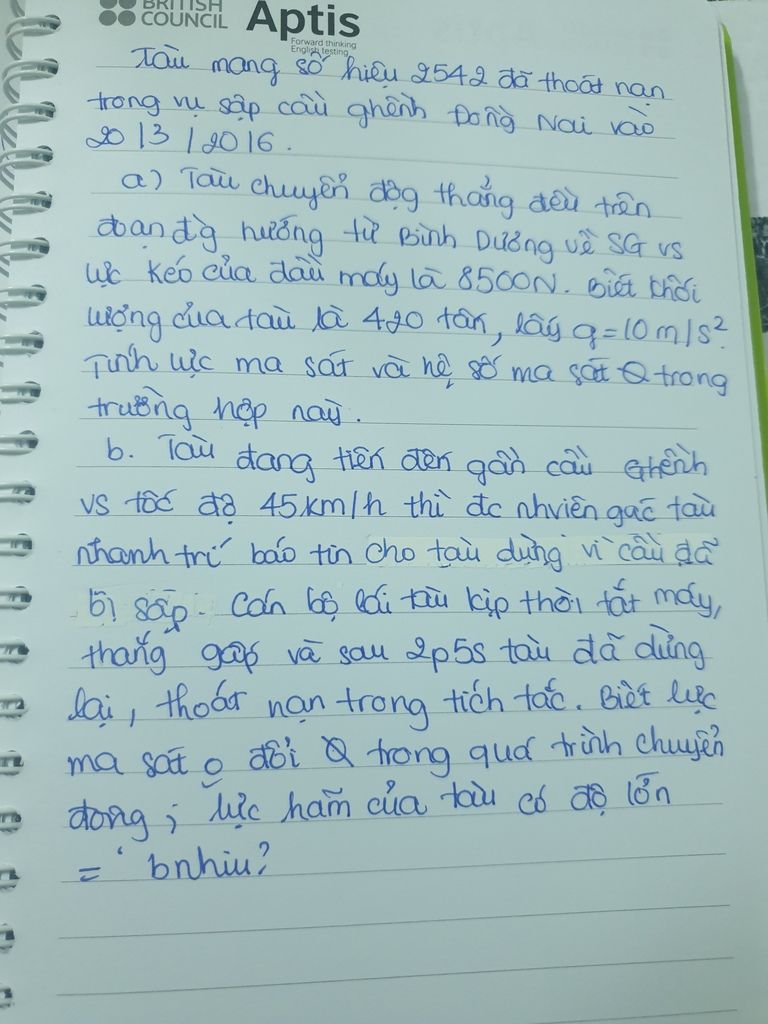 BRITISH
COUNCIL Aptis
Forward thinking
English testing
Tàu mang số hiệu 2542 đã thoát nạn
trong vụ sập cầu ghềnh Đồng Nai vào
20/3/2016.
a) Tàu chuyển độg thẳng đều trên
đoạn đ'g hướng từ Bình Dương về SG vs
lực kéo của đầu máy là 8500N. Biết khối
lượng của tàu là 420 tấn, lấy g=10m/s².
Tính lực ma sát và hệ số ma sát trong
trường hợp này.
b. Tàu đang tiến đến gần cầu Ghềnh
vs tốc độ 45km/h thì đc nhviên gác tàu
nhanh trí báo tin cho tàu dựng vì cầu đã
bị sập. Cán bộ lái tàu kịp thời tắt máy,
thắng gấp và sau 2p5s tàu đã dừng
lại, thoát nạn trong tích tắc. Biết lực
ma sát o đổi trong quá trình chuyển
động; lực hãm của tàu có độ lớn
= bnhiu?